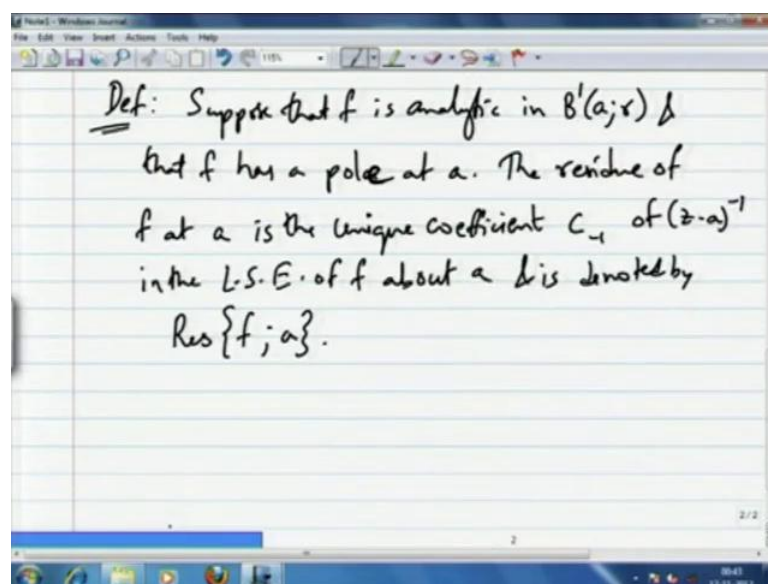 Note1 - Windows Journal
File Edit View Insert Actions Tools Help
115%
Def: Suppose that f is analytic in B'(a;r) &
that f has a pole at a. The residue of
f at a is the unique coefficient C₋₁ of (z-a)⁻¹
in the L.S.E. of f about a & is denoted by
Res{f ; a}.
2/2
2